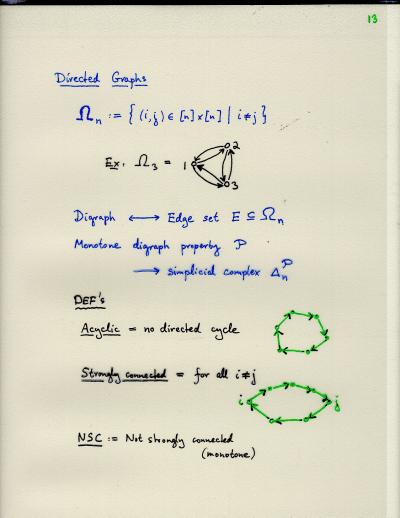 13
Directed Graphs
Ωₙ := { (i,j) ∈ [n]×[n] | i≠j }
Ex. Ω₃ = 1 2 3
Digraph ⟷ Edge set E ⊆ Ωₙ
Monotone digraph property P
⟶ simplicial complex Δₙᴾ
DEF's
Acyclic = no directed cycle
Strongly connected = for all i≠j
i j
NSC := Not strongly connected
(monotone)